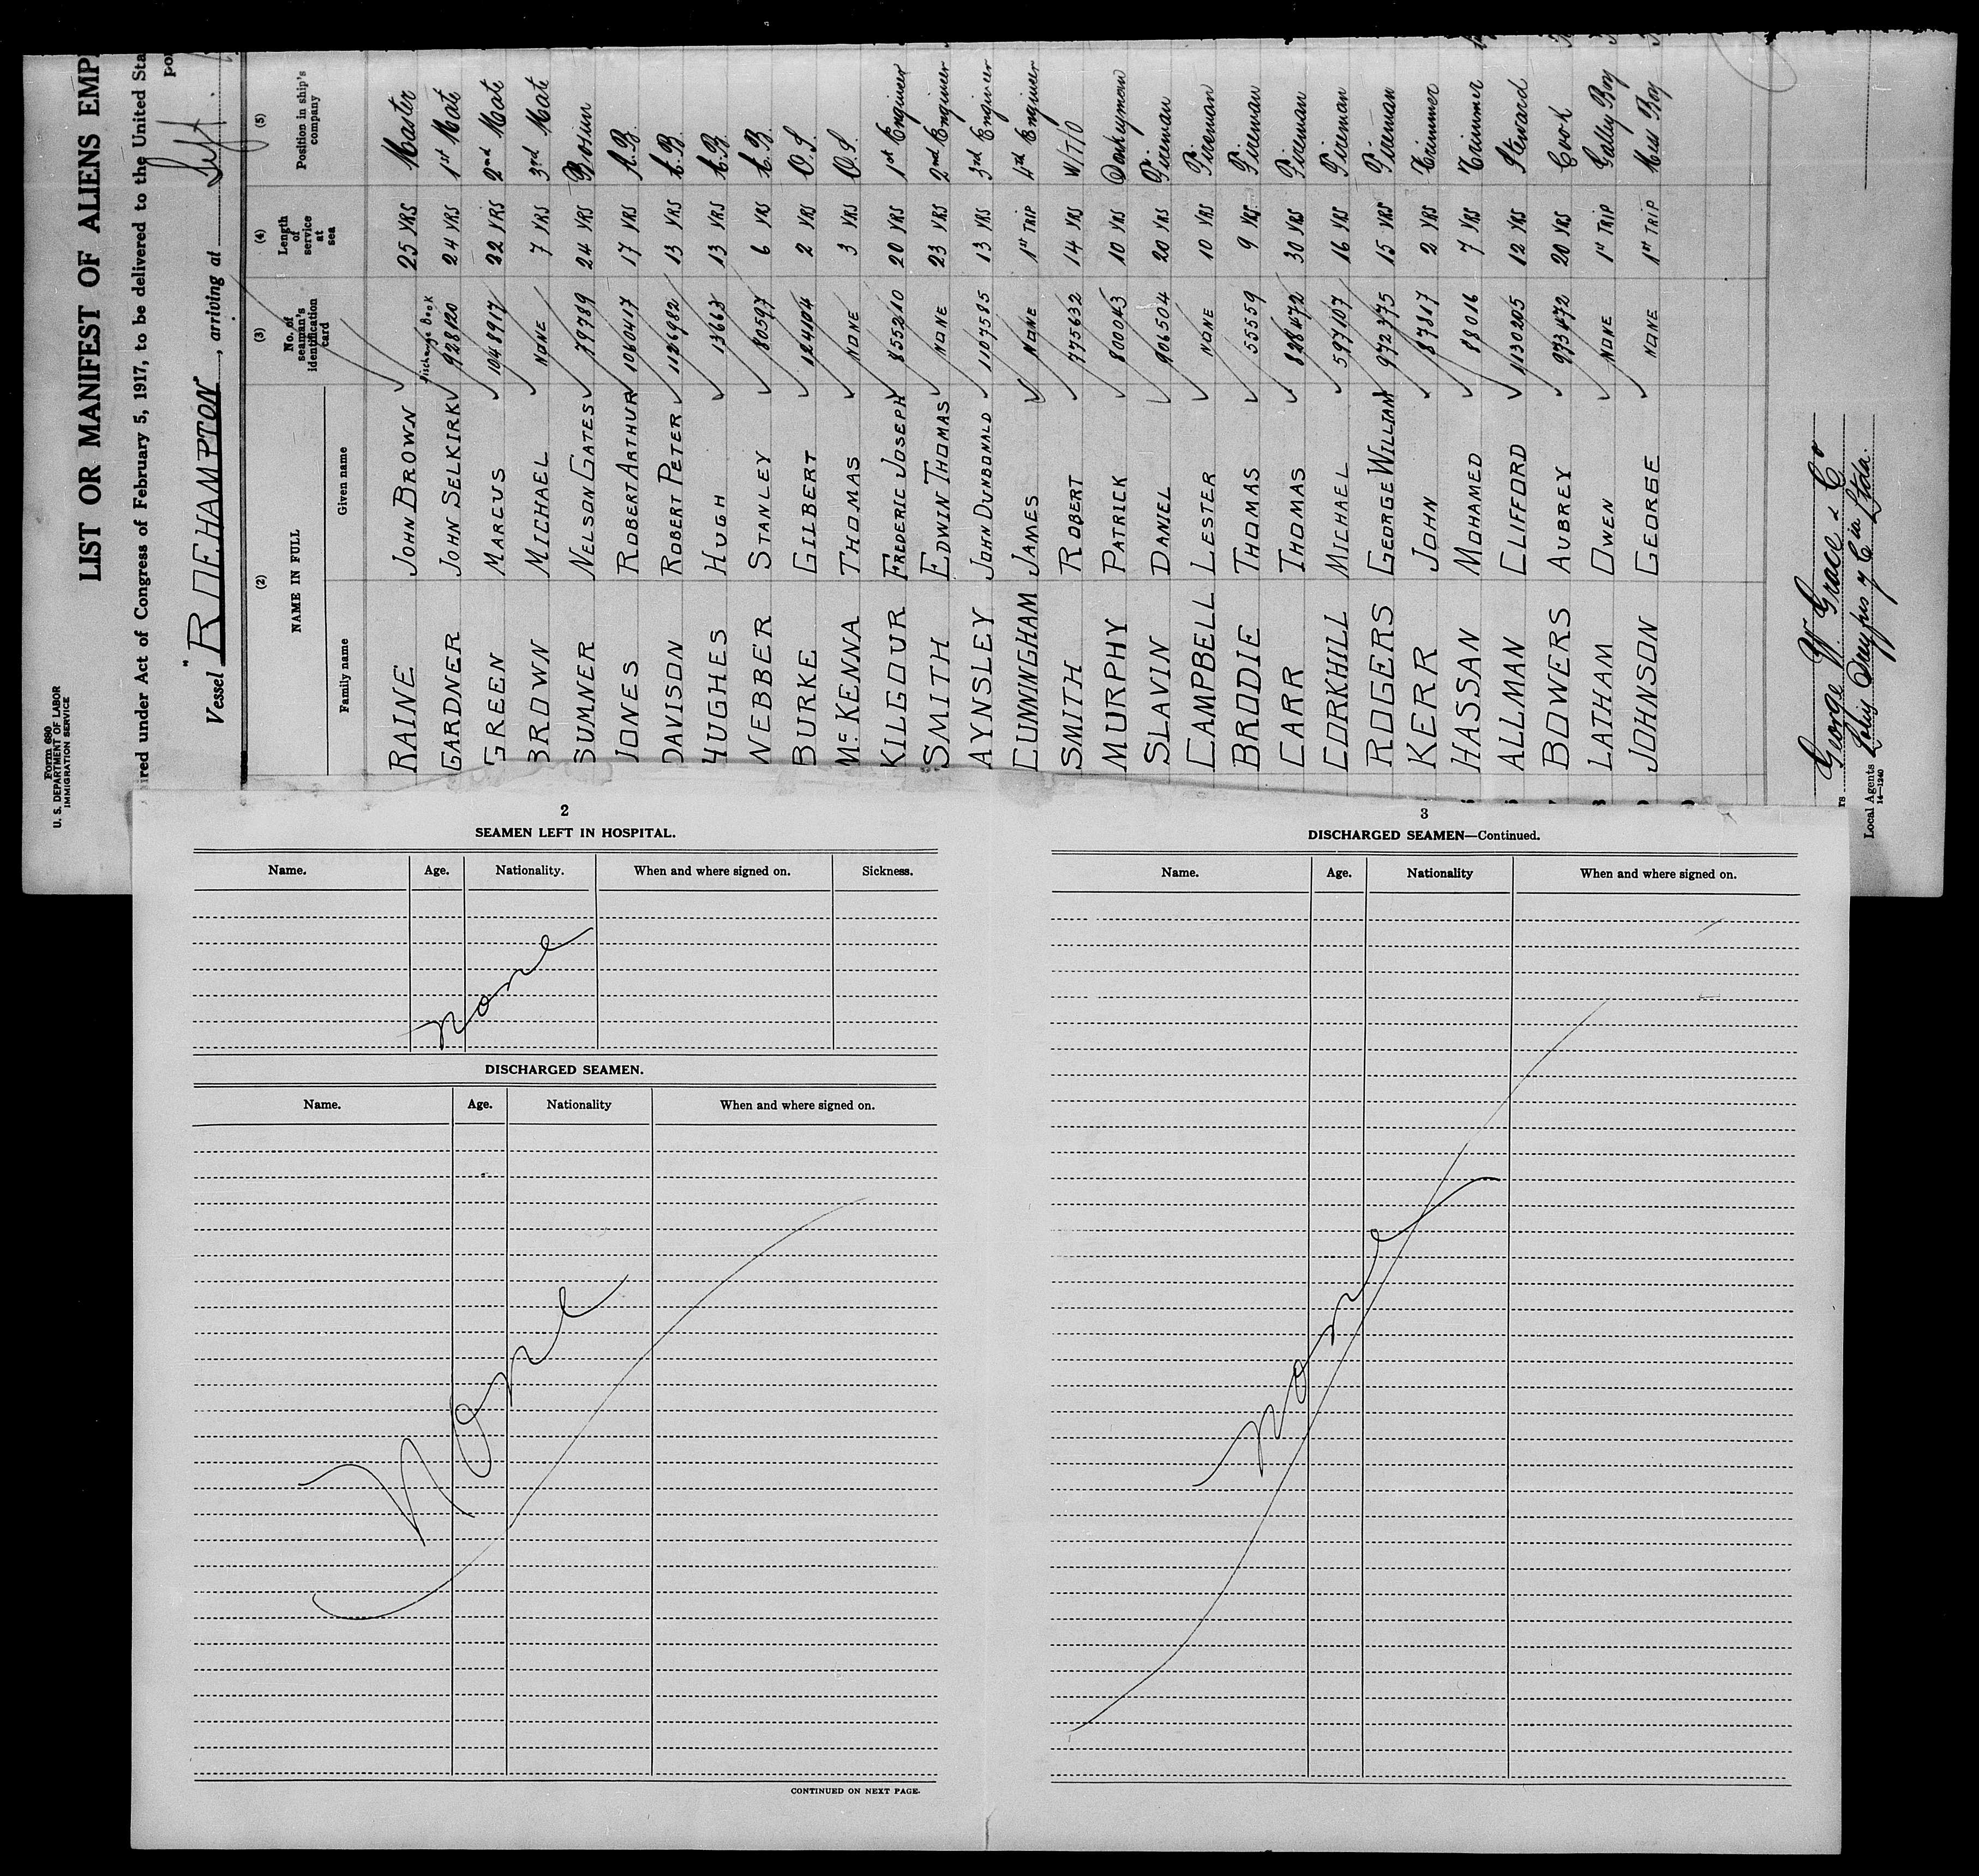 Form 680
U. S. DEPARTMENT OF LABOR
IMMIGRATION SERVICE
LIST OR MANIFEST OF ALIENS EMP
ired under Act of Congress of February 5, 1917, to be delivered to the United Sta
Vessel "ROEHAMPTON", arriving at Sept.
po
(2) (3) (4) (5)
NAME IN FULL No. of seaman's identification card Length of service at sea Position in ship's company
Family name Given name
RAINE JOHN BROWN 25 YRS Master
Discharge Book
GARDNER JOHN SELKIRK 928120 24 YRS 1st Mate
GREEN MARCUS 1048917 22 YRS 2nd Mate
BROWN MICHAEL NONE 7 YRS 3rd Mate
SUMNER NELSON GATES 79789 24 YRS Bosun
JONES ROBERT ARTHUR 1060417 17 YRS A.B.
DAVISON ROBERT PETER 1126982 13 YRS A.B.
HUGHES HUGH 13663 13 YRS A.B.
WEBBER STANLEY 80597 6 YRS A.B.
BURKE GILBERT 1241104 2 YRS O.S.
McKENNA THOMAS NONE 3 YRS O.S.
KILGOUR FREDERIC JOSEPH 855210 20 YRS 1st Engineer
SMITH EDWIN THOMAS NONE 23 YRS 2nd Engineer
AYNSLEY JOHN DUNBONALD 1107585 13 YRS 3rd Engineer
CUNNINGHAM JAMES NONE 1st TRIP 4th Engineer
SMITH ROBERT 775632 14 YRS W/T/O
MURPHY PATRICK 800043 10 YRS Donkeyman
SLAVIN DANIEL 906504 20 YRS Fireman
CAMPBELL LESTER NONE 10 YRS Fireman
BRODIE THOMAS 55559 9 YRS Fireman
CARR THOMAS 828472 30 YRS Fireman
CORKHILL MICHAEL 597107 16 YRS Fireman
ROGERS GEORGE WILLIAM 972375 15 YRS Fireman
KERR JOHN 87317 2 YRS Trimmer
HASSAN MOHAMED 88016 7 YRS Trimmer
ALLMAN CLIFFORD 1130205 12 YRS Steward
BOWERS AUBREY 973472 20 YRS Cook
LATHAM OWEN NONE 1st TRIP Galley Boy
JOHNSON GEORGE NONE 1st TRIP Mess Boy
rs George W. Grace & Co
Local Agents Louis Dreyfus y Cia Ltda.
14—1240
2
SEAMEN LEFT IN HOSPITAL.
Name. Age. Nationality. When and where signed on. Sickness.
None
DISCHARGED SEAMEN.
Name. Age. Nationality When and where signed on.
None
CONTINUED ON NEXT PAGE.
3
DISCHARGED SEAMEN—Continued.
Name. Age. Nationality When and where signed on.
None